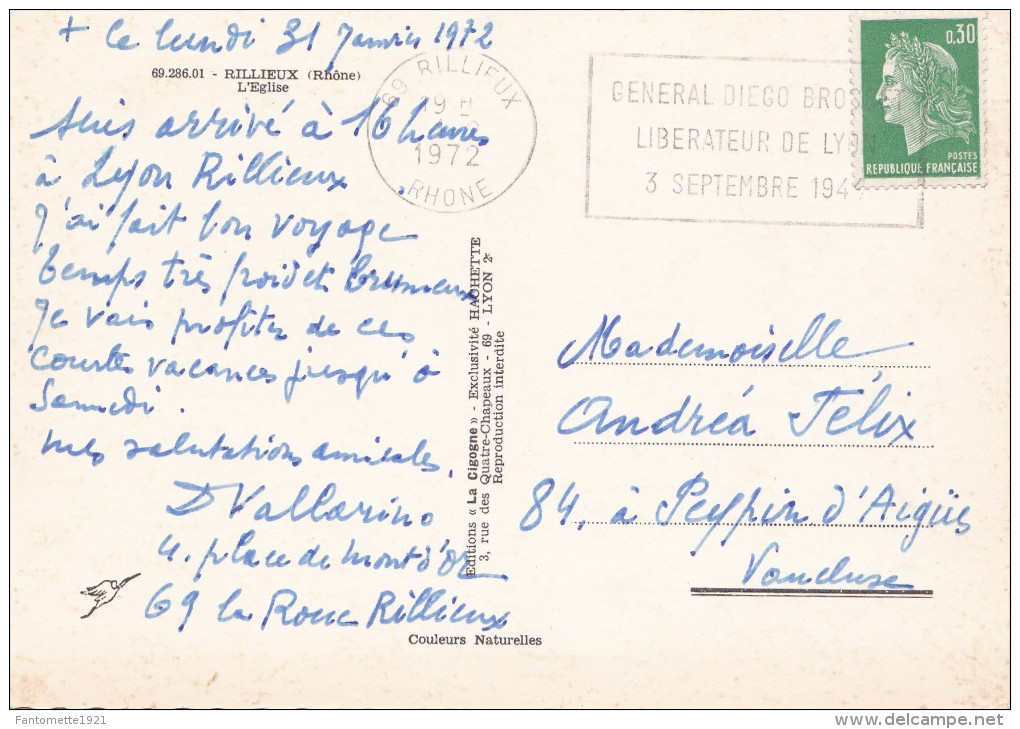 + Ce lundi 31 Janvier 1972
69.286.01 - RILLIEUX (Rhône)
L'Eglise
suis arrivé à 16 heures
à Lyon Rillieux
J'ai fait bon voyage
temps très froid et brumeux
Je vais profiter de ces
courtes vacances jusqu'à
Samedi.
mes salutations amicales.
D Vallarino
4, place de Mont d'Or
69 la Roue Rillieux
Couleurs Naturelles
Editions « La Cigogne » - Exclusivité HACHETTE
3, rue des Quatre-Chapeaux - 69 - LYON 2e
Reproduction interdite
69 RILLIEUX
19 H
1972
RHONE
GENERAL DIEGO BROS
LIBERATEUR DE LYON
3 SEPTEMBRE 194
0,30
POSTES
REPUBLIQUE FRANÇAISE
Mademoiselle
Andréa Félix
84, à Peypin d'Aigües
Vaucluse
Fantomette1921
delcampe.net